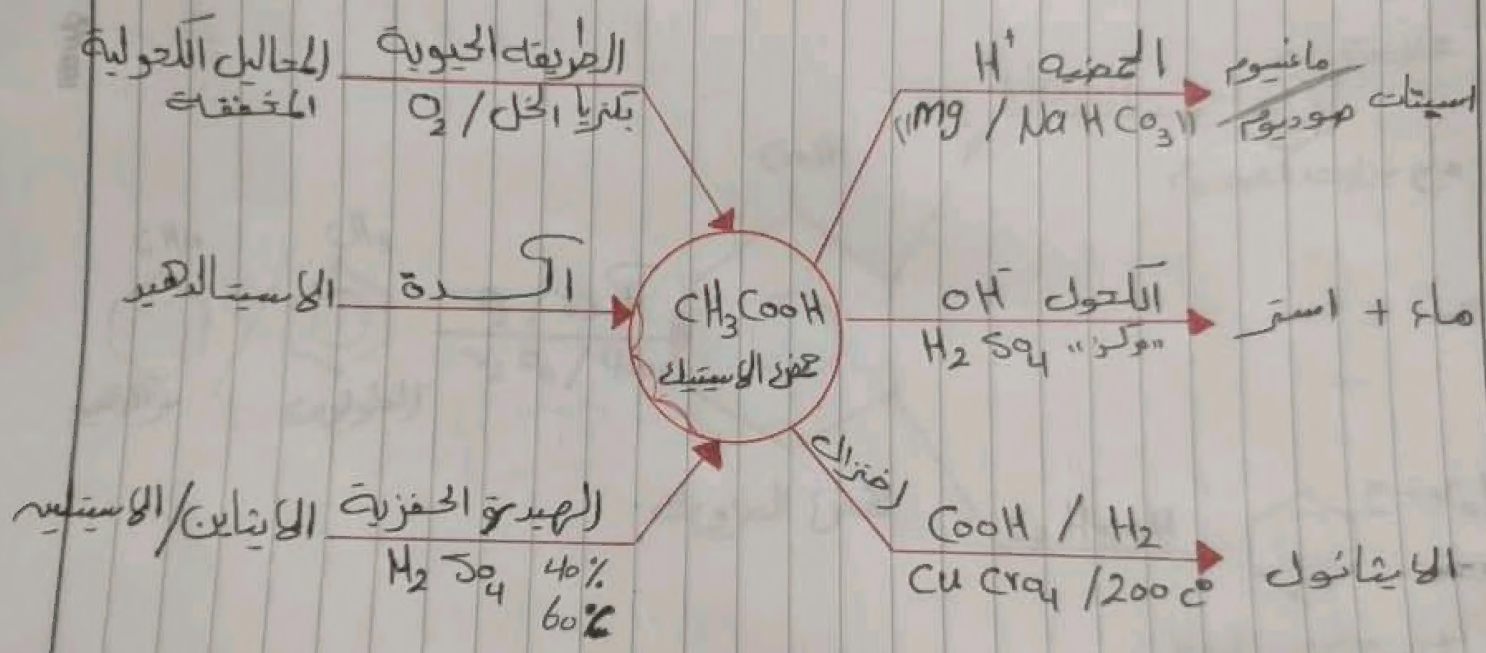 المحاليل الكحولية
المخففة
الطريقة الحيوية
بكتريا الخل / O₂
الاسيتالدهيد
اكسدة
الايثاين/الاسيتلين
الهيدرة الحفزية
H₂SO₄ 40%
60%
CH₃COOH
حمض الاسيتيك
الحمضيه H⁺
"Mg / NaHCO₃"
اسيتات ماغنسيوم
صوديوم
الكحول OH⁻
H₂SO₄ "مركز"
ماء + استر
اختزال
COOH / H₂
CuCrO₄ /200 c°
الايثانول